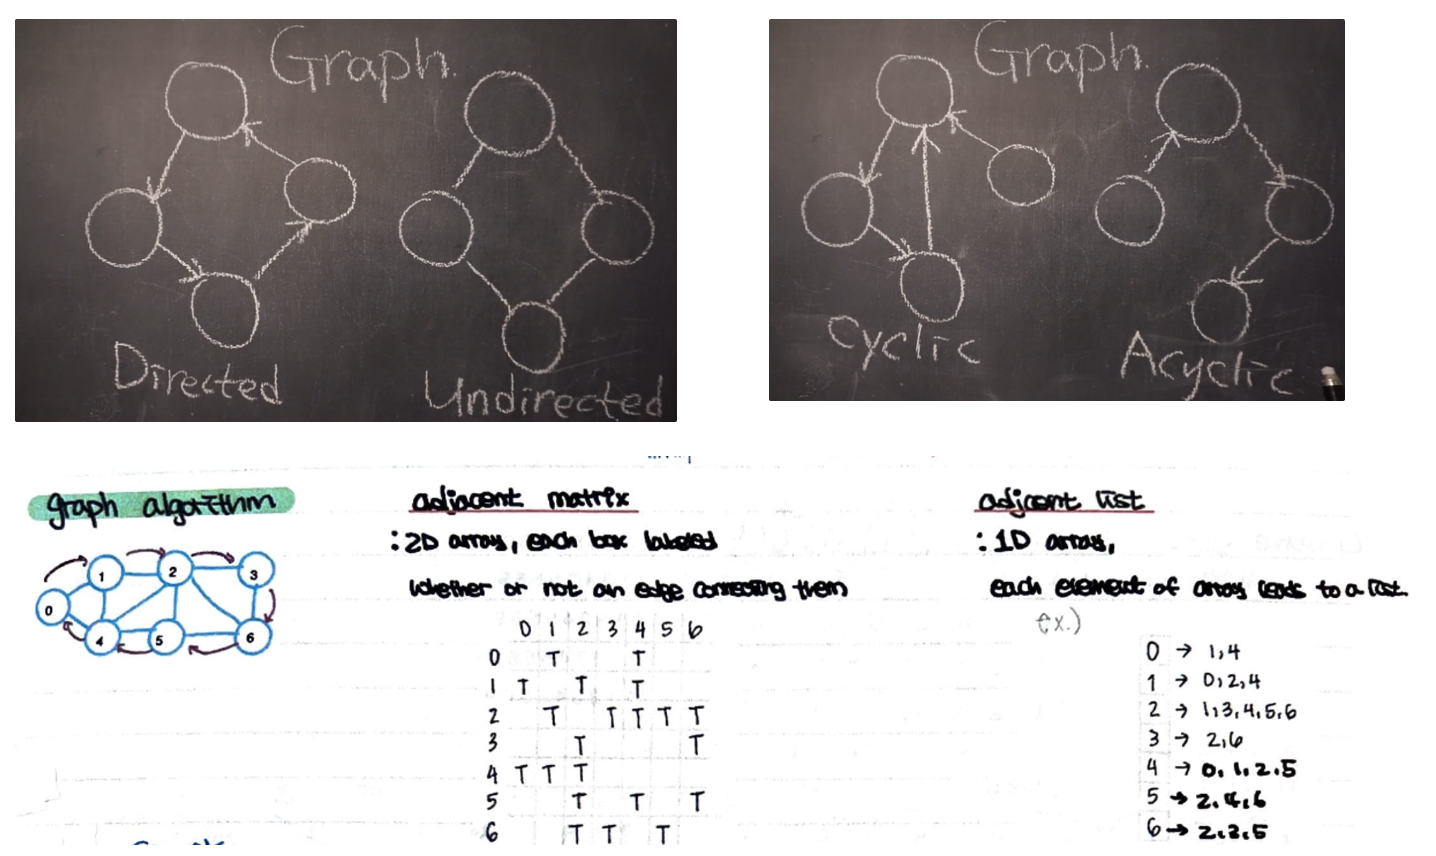 Graph
Directed
Undirected
Graph
Cyclic
Acyclic
graph algorithm
0 1 2 3 4 5 6
adjacent matrix
: 2D array, each box labeled
whether or not an edge connecting them
0 1 2 3 4 5 6
0 T T
1 T T T
2 T T T T T
3 T T
4 T T T
5 T T T
6 T T T
adjcent list
: 1D array,
each element of array leads to a list.
ex.)
0 → 1,4
1 → 0,2,4
2 → 1,3,4,5,6
3 → 2,6
4 → 0,1,2,5
5 → 2,4,6
6 → 2,3,5